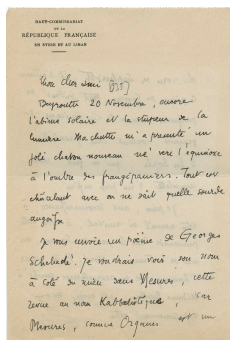 HAUT-COMMISSARIAT
DE LA
RÉPUBLIQUE FRANÇAISE
EN SYRIE ET AU LIBAN
Mon cher ami
Beyrouth 20 Novembre, encore
l'abîme solaire et la stupeur de la
lumière Ma chatte m'a présenté un
joli chaton nouveau né vers l'équinoxe
à l'ombre des frangipaniers. Tout est
chancelant avec on ne sait quelle sourde
angoisse
Je vous envoie un poème de Georges
Schehadé. Je voudrais voir son nom
à côté du mien dans Mesures, cette
revue au nom Kabbalistique, car
Mesures, comme Organes est un